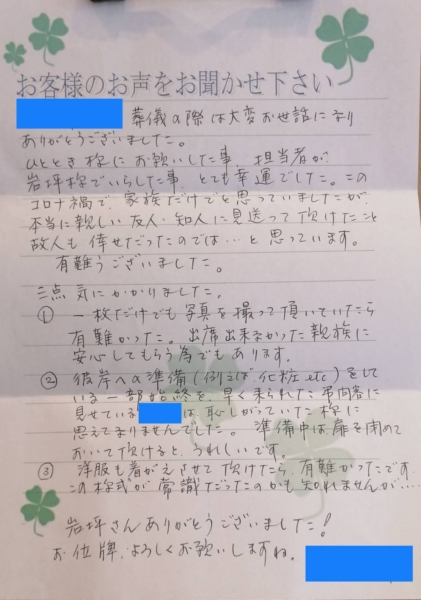 お客様のお声をお聞かせ下さい
葬儀の際は大変お世話になり
ありがとうございました。
ひととき桜にお願いした事、担当者が
岩坪様でいらした事、とても幸運でした。この
コロナ禍で、家族だけでと思っていましたが、
本当に親しい友人・知人に見送って頂けたこと
故人も倖せだったのでは…と思っています。
有難うございました。
二点気にかかりました。
① 一枚だけでも写真を撮って頂いていたら
有難かった。出席出来なかった親族に
安心してもらう為でもあります。
② 彼岸への準備(例えば、化粧etc)をして
いる一部始終を、早く来られた弔問客に
見せている は、恥しがっていた様に
思えてなりませんでした。準備中は扉を閉めて
おいて頂けると、うれしいです。
③ 洋服も着がえさせて頂けたら、有難かったです
この様式が常識だったのかも知れませんが…
岩坪さんありがとうございました!
お位牌、よろしくお願いしますね。